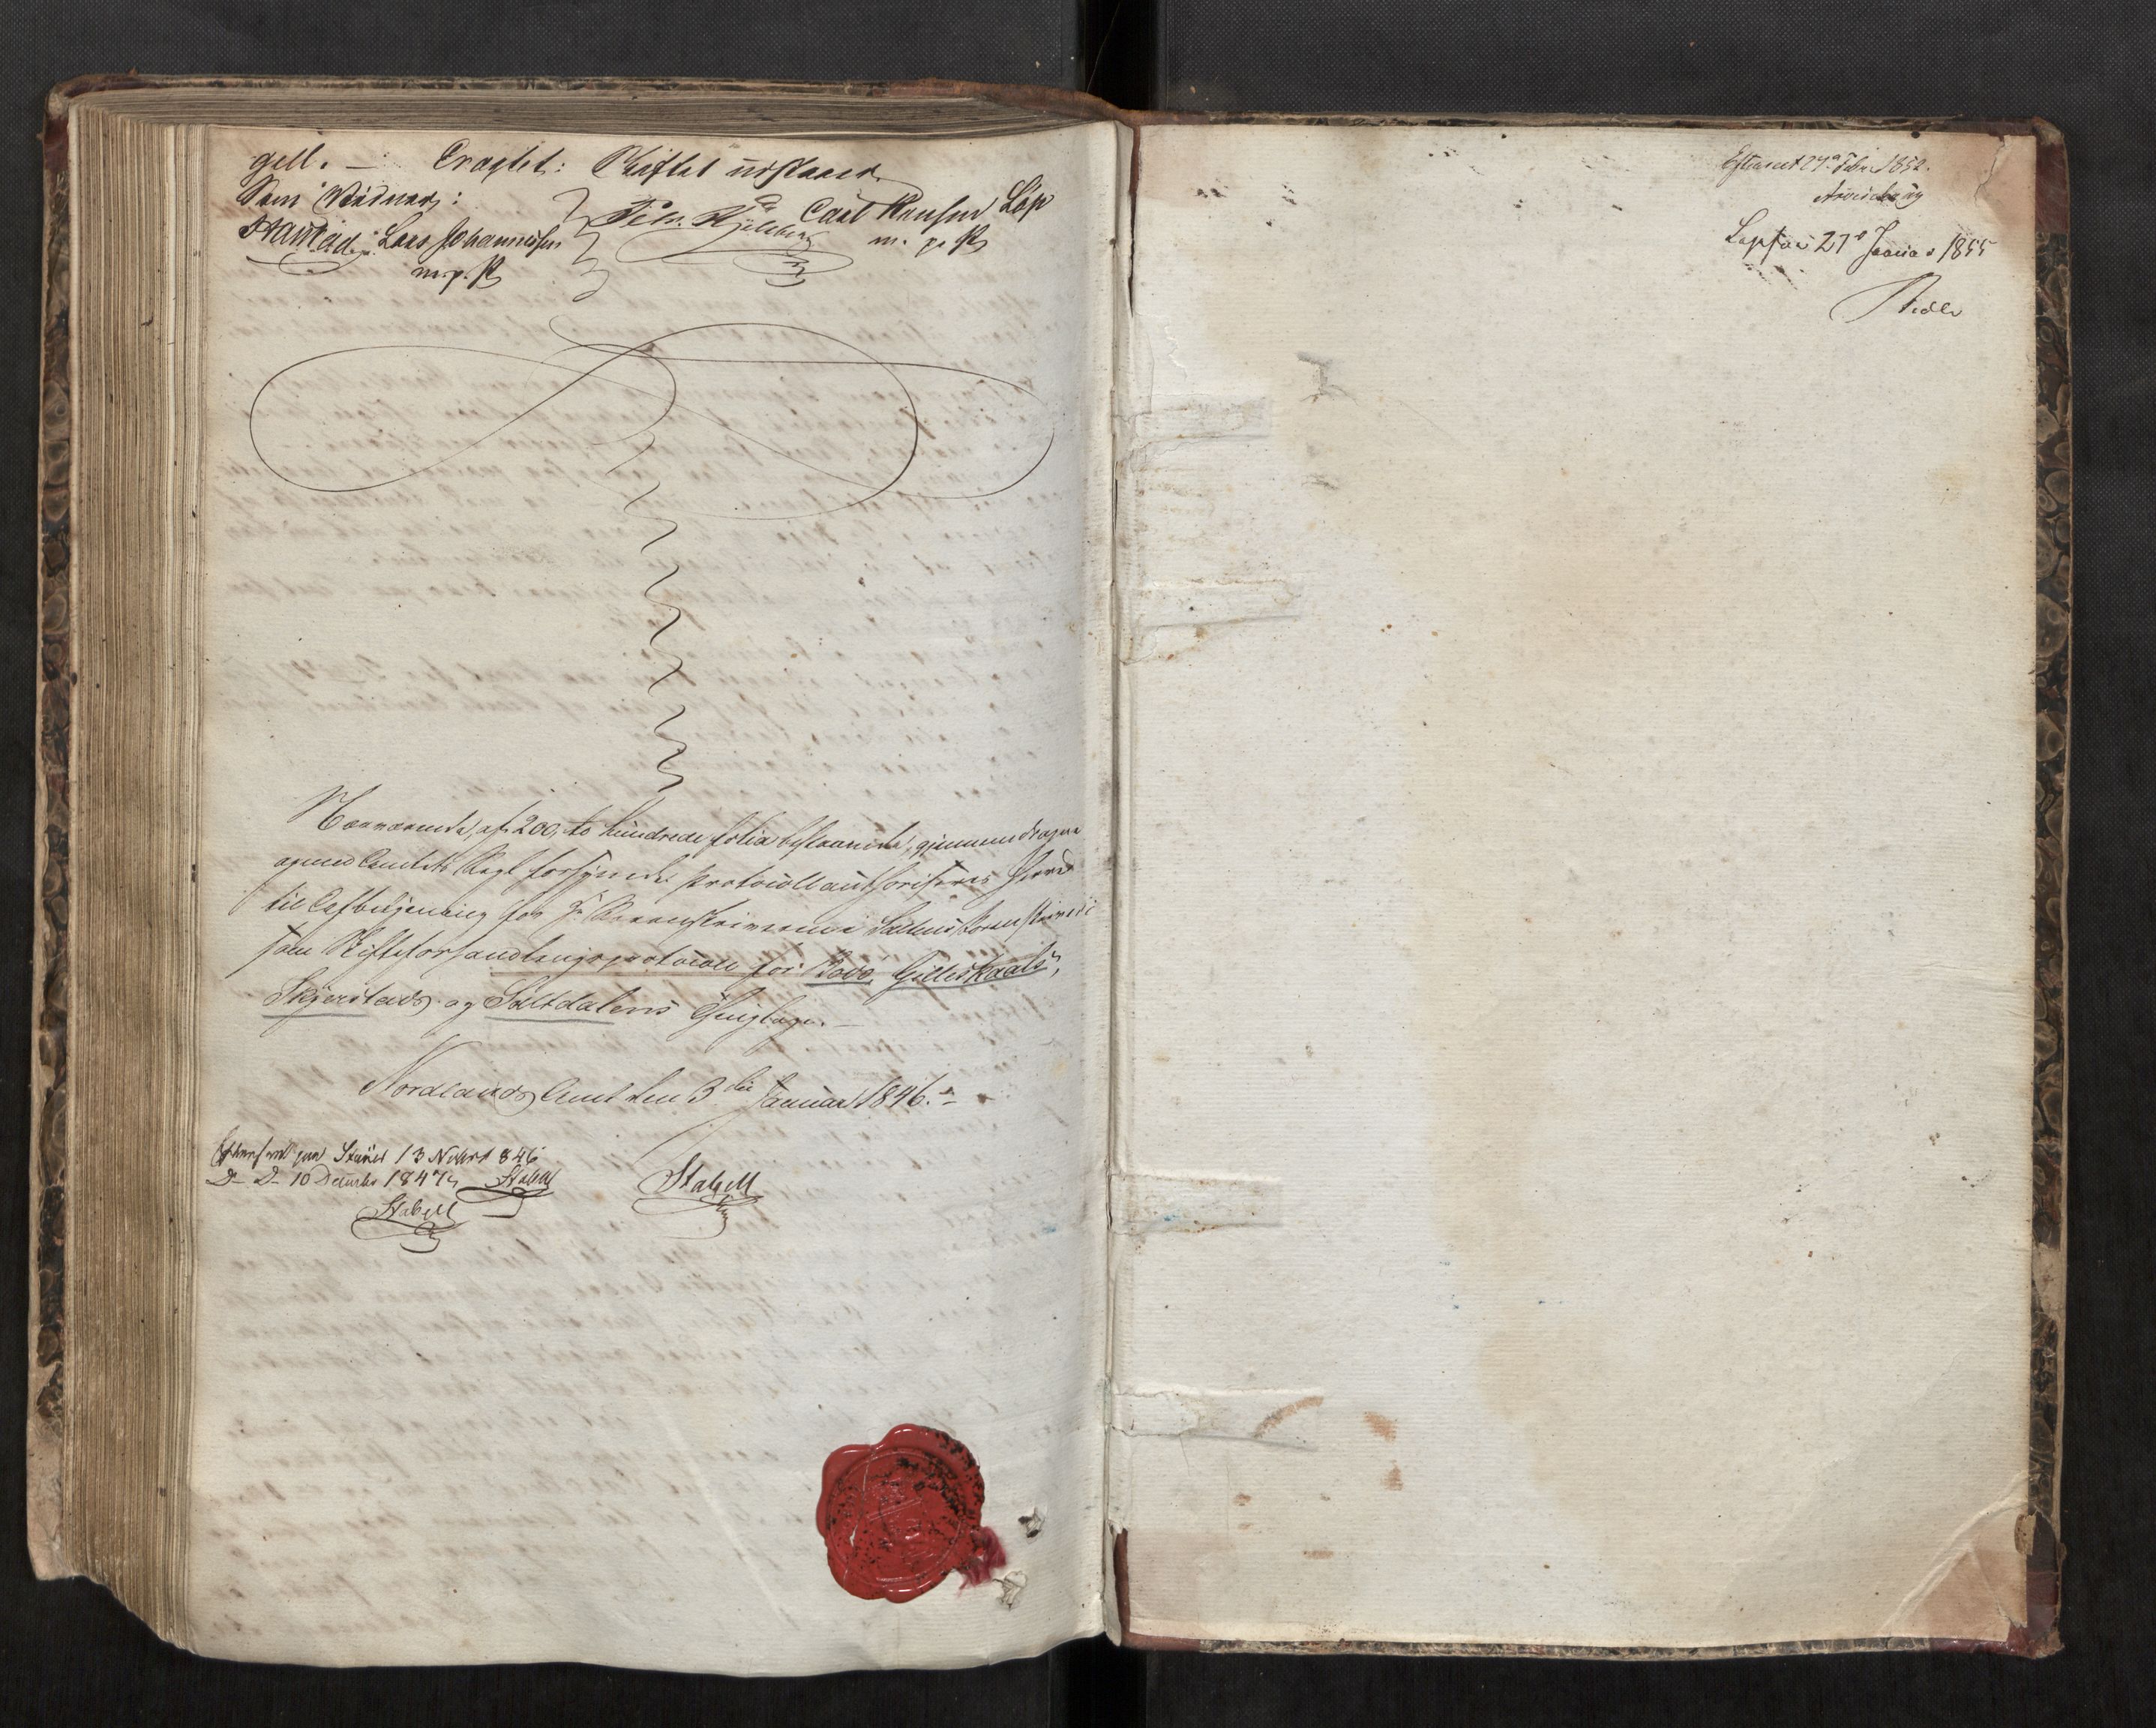 gell. — Eragtet: Skiftet udstaaer.
Som Vidner:
Lars Johannessen
m. p. P.
Carl Hansen Løp
m. p. P.
Nærværende, af 200, to hundrede folia bestaaende, gjennemdragne
og med Amtets Segl forsynede Protocoll authoriseres herved
til Afbenyttelse for Hr Sorenskriveren i Saltens Sorenskriverie
som Skifteforhandlingsprotocoll for Bodø, Gilleskaals,
Skjerstads og Saltdalens Thinglage. —
Nordlands Amt den 3die Januar 1846. —
Stabell
Efterseet paa Stuvis 13 Novbr 1846
D– D– 10 December 1847 Stabell
Stabell
Efterseet 27de Febr. 1852.
27de Januar 1855